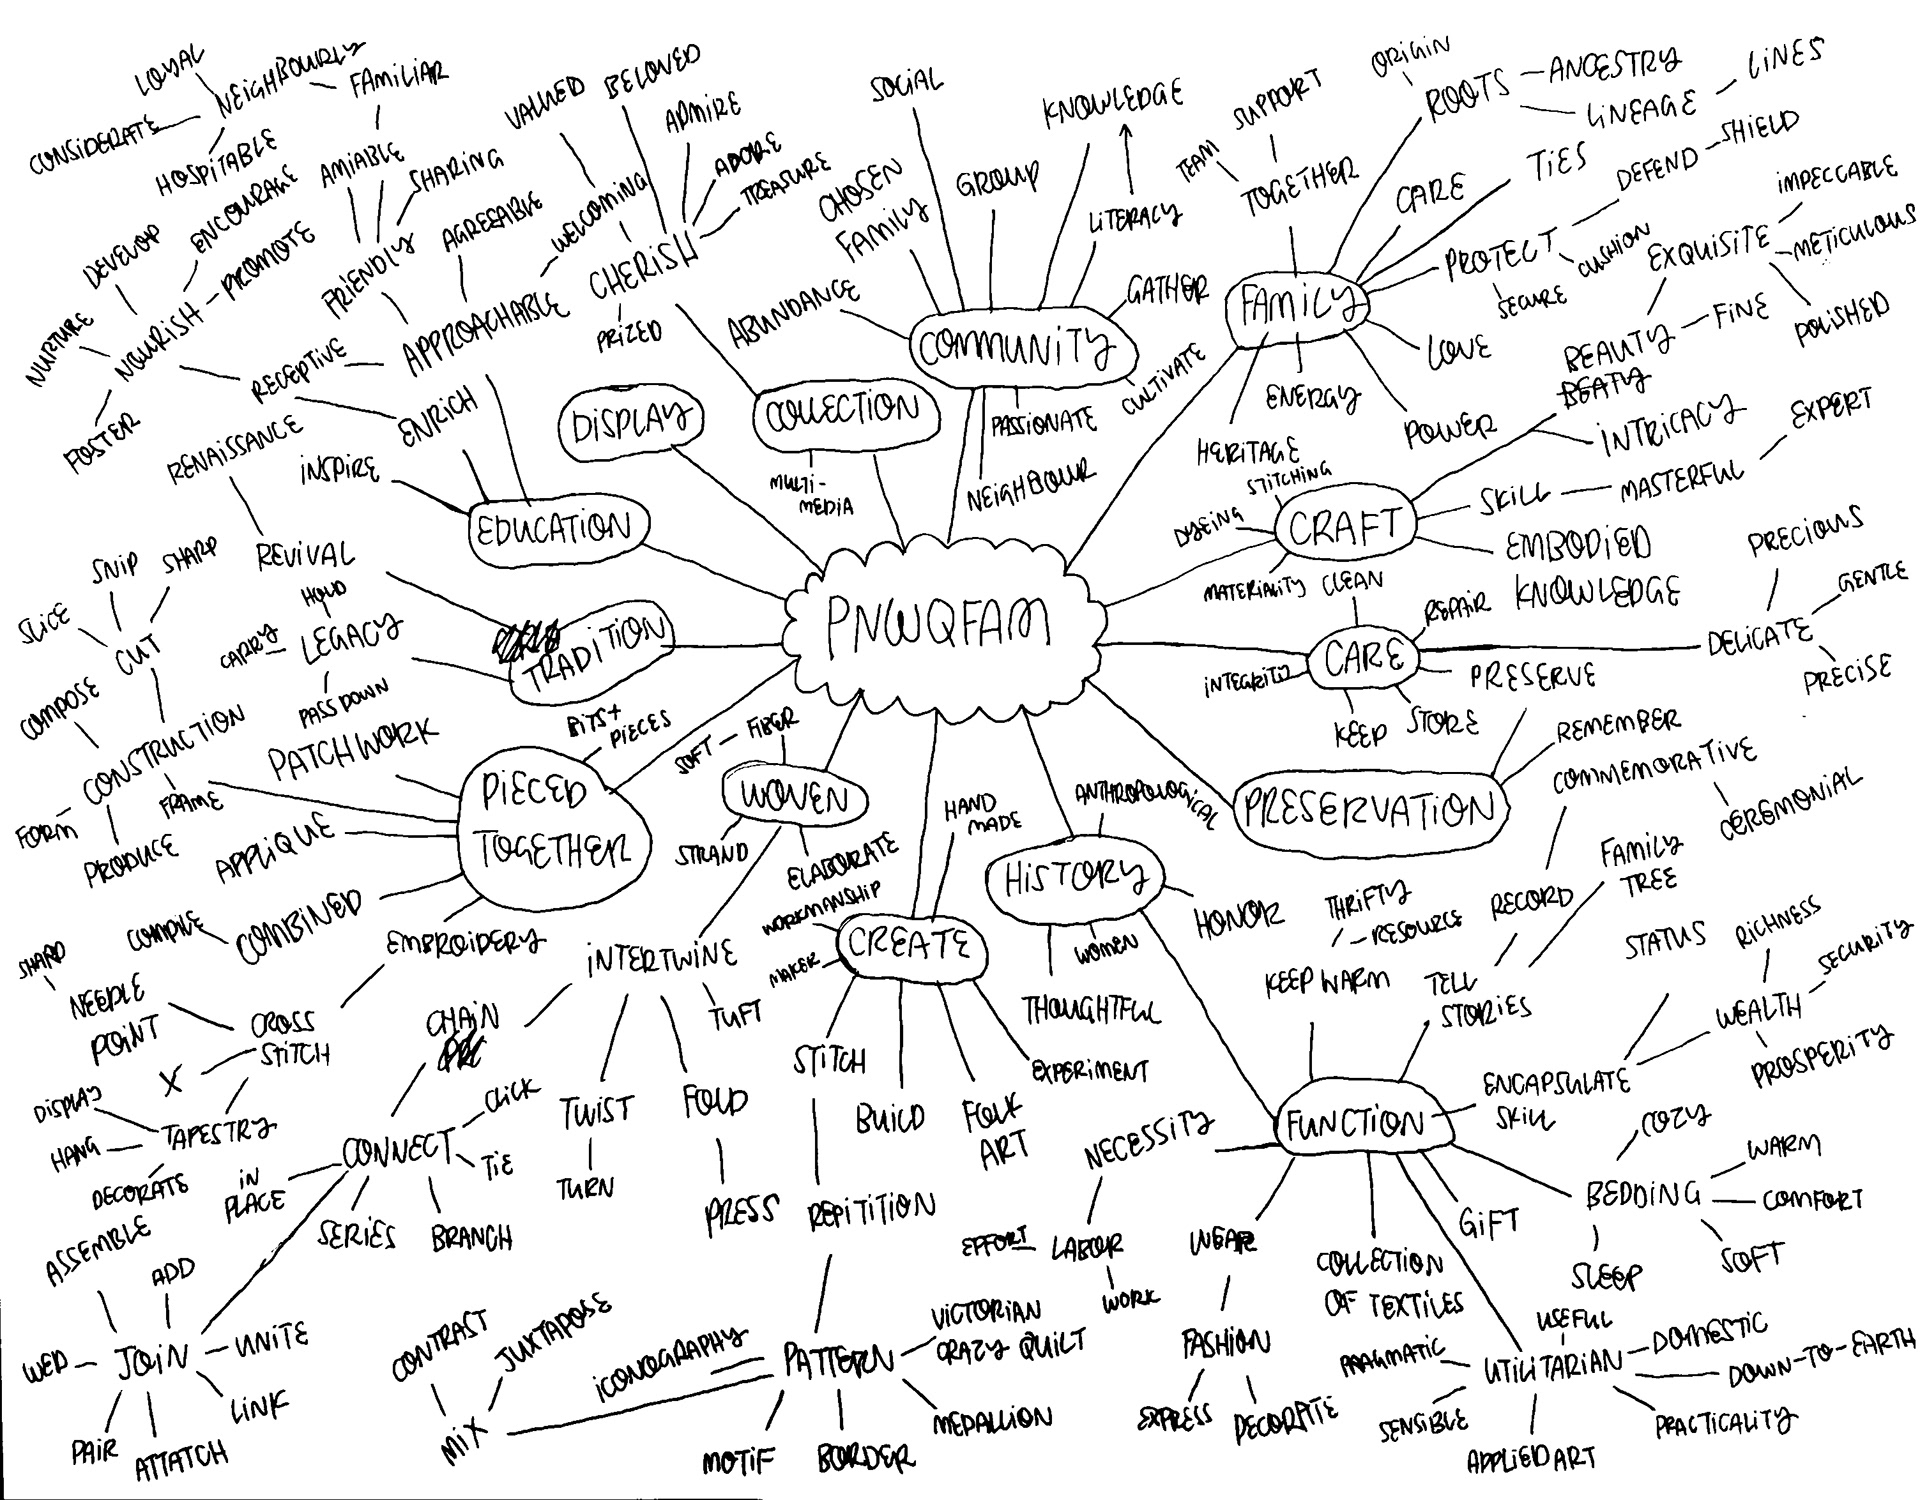 PNWQFAM
DISPLAY
COLLECTION
MULTI-
MEDIA
CHERISH
PRIZED
VALUED
BELOVED
ADMIRE
ADORE
TREASURE
COMMUNITY
ABUNDANCE
CHOSEN
FAMILY
SOCIAL
GROUP
KNOWLEDGE
LITERACY
GATHER
CULTIVATE
PASSIONATE
NEIGHBOUR
FAMILY
TOGETHER
TEAM
SUPPORT
ROOTS
ORIGIN
ANCESTRY
LINEAGE
LINES
CARE
TIES
PROTECT
DEFEND
SHIELD
CUSHION
SECURE
LOVE
POWER
ENERGY
HERITAGE
CRAFT
STITCHING
DYEING
MATERIALITY
BEAUTY
BEATY
EXQUISITE
IMPECCABLE
METICULOUS
POLISHED
FINE
INTRICACY
SKILL
MASTERFUL
EXPERT
EMBODIED
KNOWLEDGE
CARE
CLEAN
REPAIR
INTEGRITY
KEEP
STORE
PRESERVE
DELICATE
PRECIOUS
GENTLE
PRECISE
PRESERVATION
REMEMBER
HISTORY
ANTHROPOLOGICAL
HONOR
WOMEN
THOUGHTFUL
FUNCTION
KEEP WARM
THRIFTY
RESOURCE
TELL
STORIES
RECORD
COMMEMORATIVE
CEREMONIAL
FAMILY
TREE
ENCAPSULATE
SKILL
STATUS
WEALTH
RICHNESS
SECURITY
PROSPERITY
BEDDING
COZY
WARM
COMFORT
SOFT
SLEEP
GIFT
UTILITARIAN
USEFUL
DOMESTIC
DOWN-TO-EARTH
PRACTICALITY
APPLIED ART
SENSIBLE
PRAGMATIC
COLLECTION
OF TEXTILES
WEAR
FASHION
EXPRESS
DECORATE
NECESSITY
LABOR
EFFORT
WORK
CREATE
HAND
MADE
WORKMANSHIP
MAKER
STITCH
BUILD
FOLK
ART
EXPERIMENT
REPITITION
PATTERN
VICTORIAN
CRAZY QUILT
MEDALLION
BORDER
MOTIF
ICONOGRAPHY
MIX
CONTRAST
JUXTAPOSE
WOVEN
FIBER
SOFT
STRAND
ELABORATE
INTERTWINE
TUFT
FOLD
PRESS
TWIST
TURN
CHAIN
CONNECT
CLICK
TIE
BRANCH
SERIES
IN
PLACE
JOIN
ASSEMBLE
ADD
UNITE
LINK
ATTATCH
PAIR
WED
PIECED
TOGETHER
BITS +
PIECES
PATCHWORK
CONSTRUCTION
COMPOSE
CUT
SLICE
SNIP
SHARP
FORM
PRODUCE
FRAME
APPLIQUE
COMBINED
COMPILE
EMBROIDERY
CROSS
STITCH
NEEDLE
POINT
X
TAPESTRY
DISPLAY
HANG
DECORATE
TRADITION
REVIVAL
RENAISSANCE
LEGACY
HOLD
CARRY
PASS DOWN
EDUCATION
INSPIRE
ENRICH
RECEPTIVE
NOURISH
NURTURE
DEVELOP
ENCOURAGE
PROMOTE
FOSTER
APPROACHABLE
AGREEABLE
WELCOMING
FRIENDLY
AMIABLE
SHARING
FAMILIAR
NEIGHBOURLY
LOYAL
CONSIDERATE
HOSPITABLE